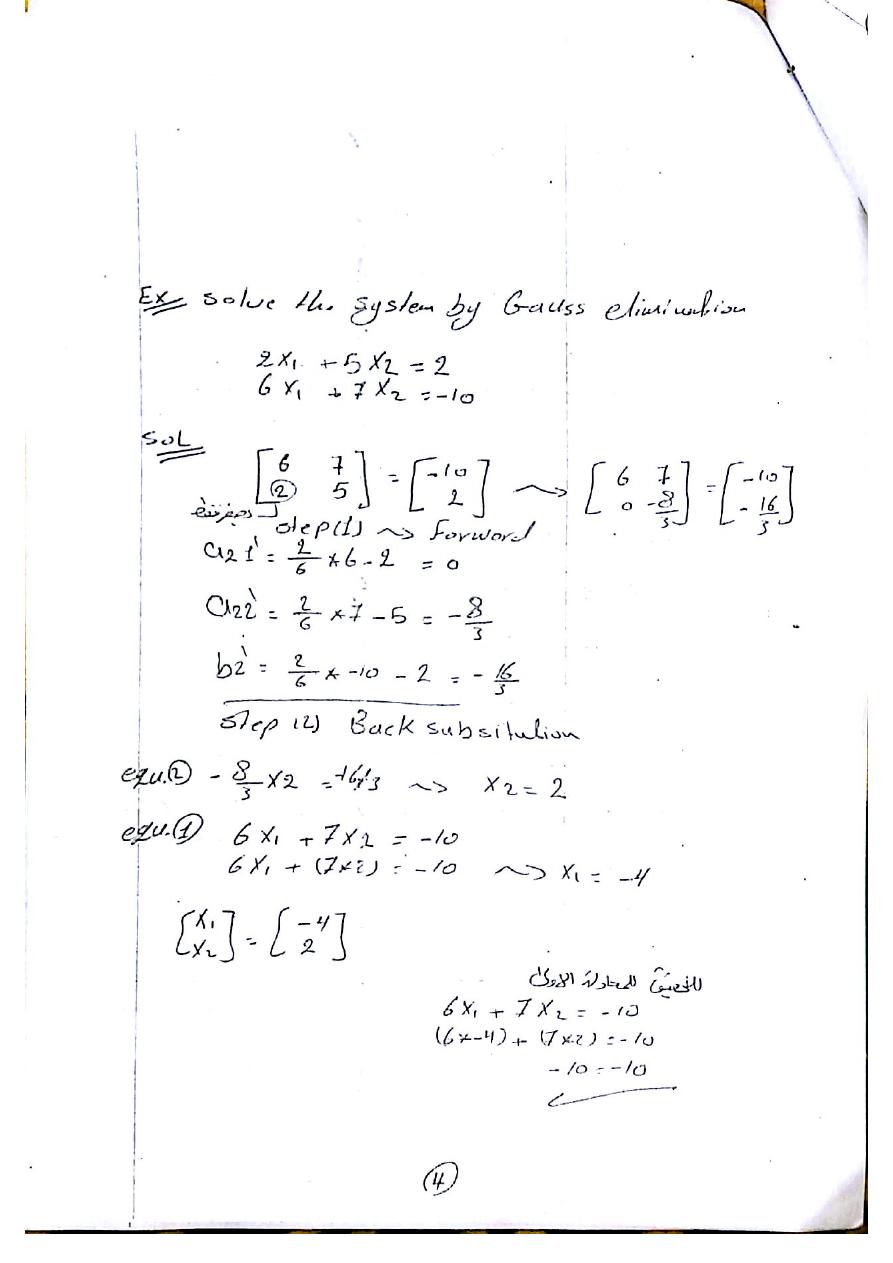 Ex solve the system by Gauss elimination
2x₁ + 5x₂ = 2
6x₁ + 7x₂ = -10
SOL
[6 7; 2 5] = [-10; 2] ⇝ [6 7; 0 -8/3] = [-10; -16/3]
step(1) ⇝ Forword
a21' = 2/6 * 6 - 2 = 0
a22' = 2/6 * 7 - 5 = -8/3
b2' = 2/6 * -10 - 2 = -16/3
step (2) Back subsitution
equ.② -8/3 x2 = -16/3 ⇝ x2 = 2
equ.① 6x₁ + 7x2 = -10
6x₁ + (7*2) = -10 ⇝ x₁ = -4
[x₁; x₂] = [-4; 2]
للتحقيق للمعادلة الاولى
6x₁ + 7x₂ = -10
(6*-4) + (7*2) = -10
-10 = -10
④